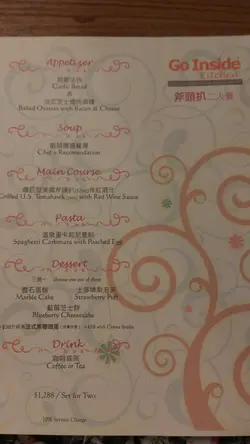 Appetizer
Garlic Bread
Baked Oysters with Bacon & Cheese
Go Inside
Kitchen
斧頭扒二人餐
Soup
Chef's Recomendation
Main Course
Grilled U.S. Tomahawk with Red Wine Sauce
Pasta
Spaghetti Carbonara with Poached Egg
Dessert
choose one out of three
雲石蛋糕
Marble Cake
士多啤梨泡芙
Strawberry Puff
藍莓芝士餅
Blueberry Cheesecake
Drink
咖啡或茶
Coffee or Tea
$1,288 / Set for Two
10% Service Charge